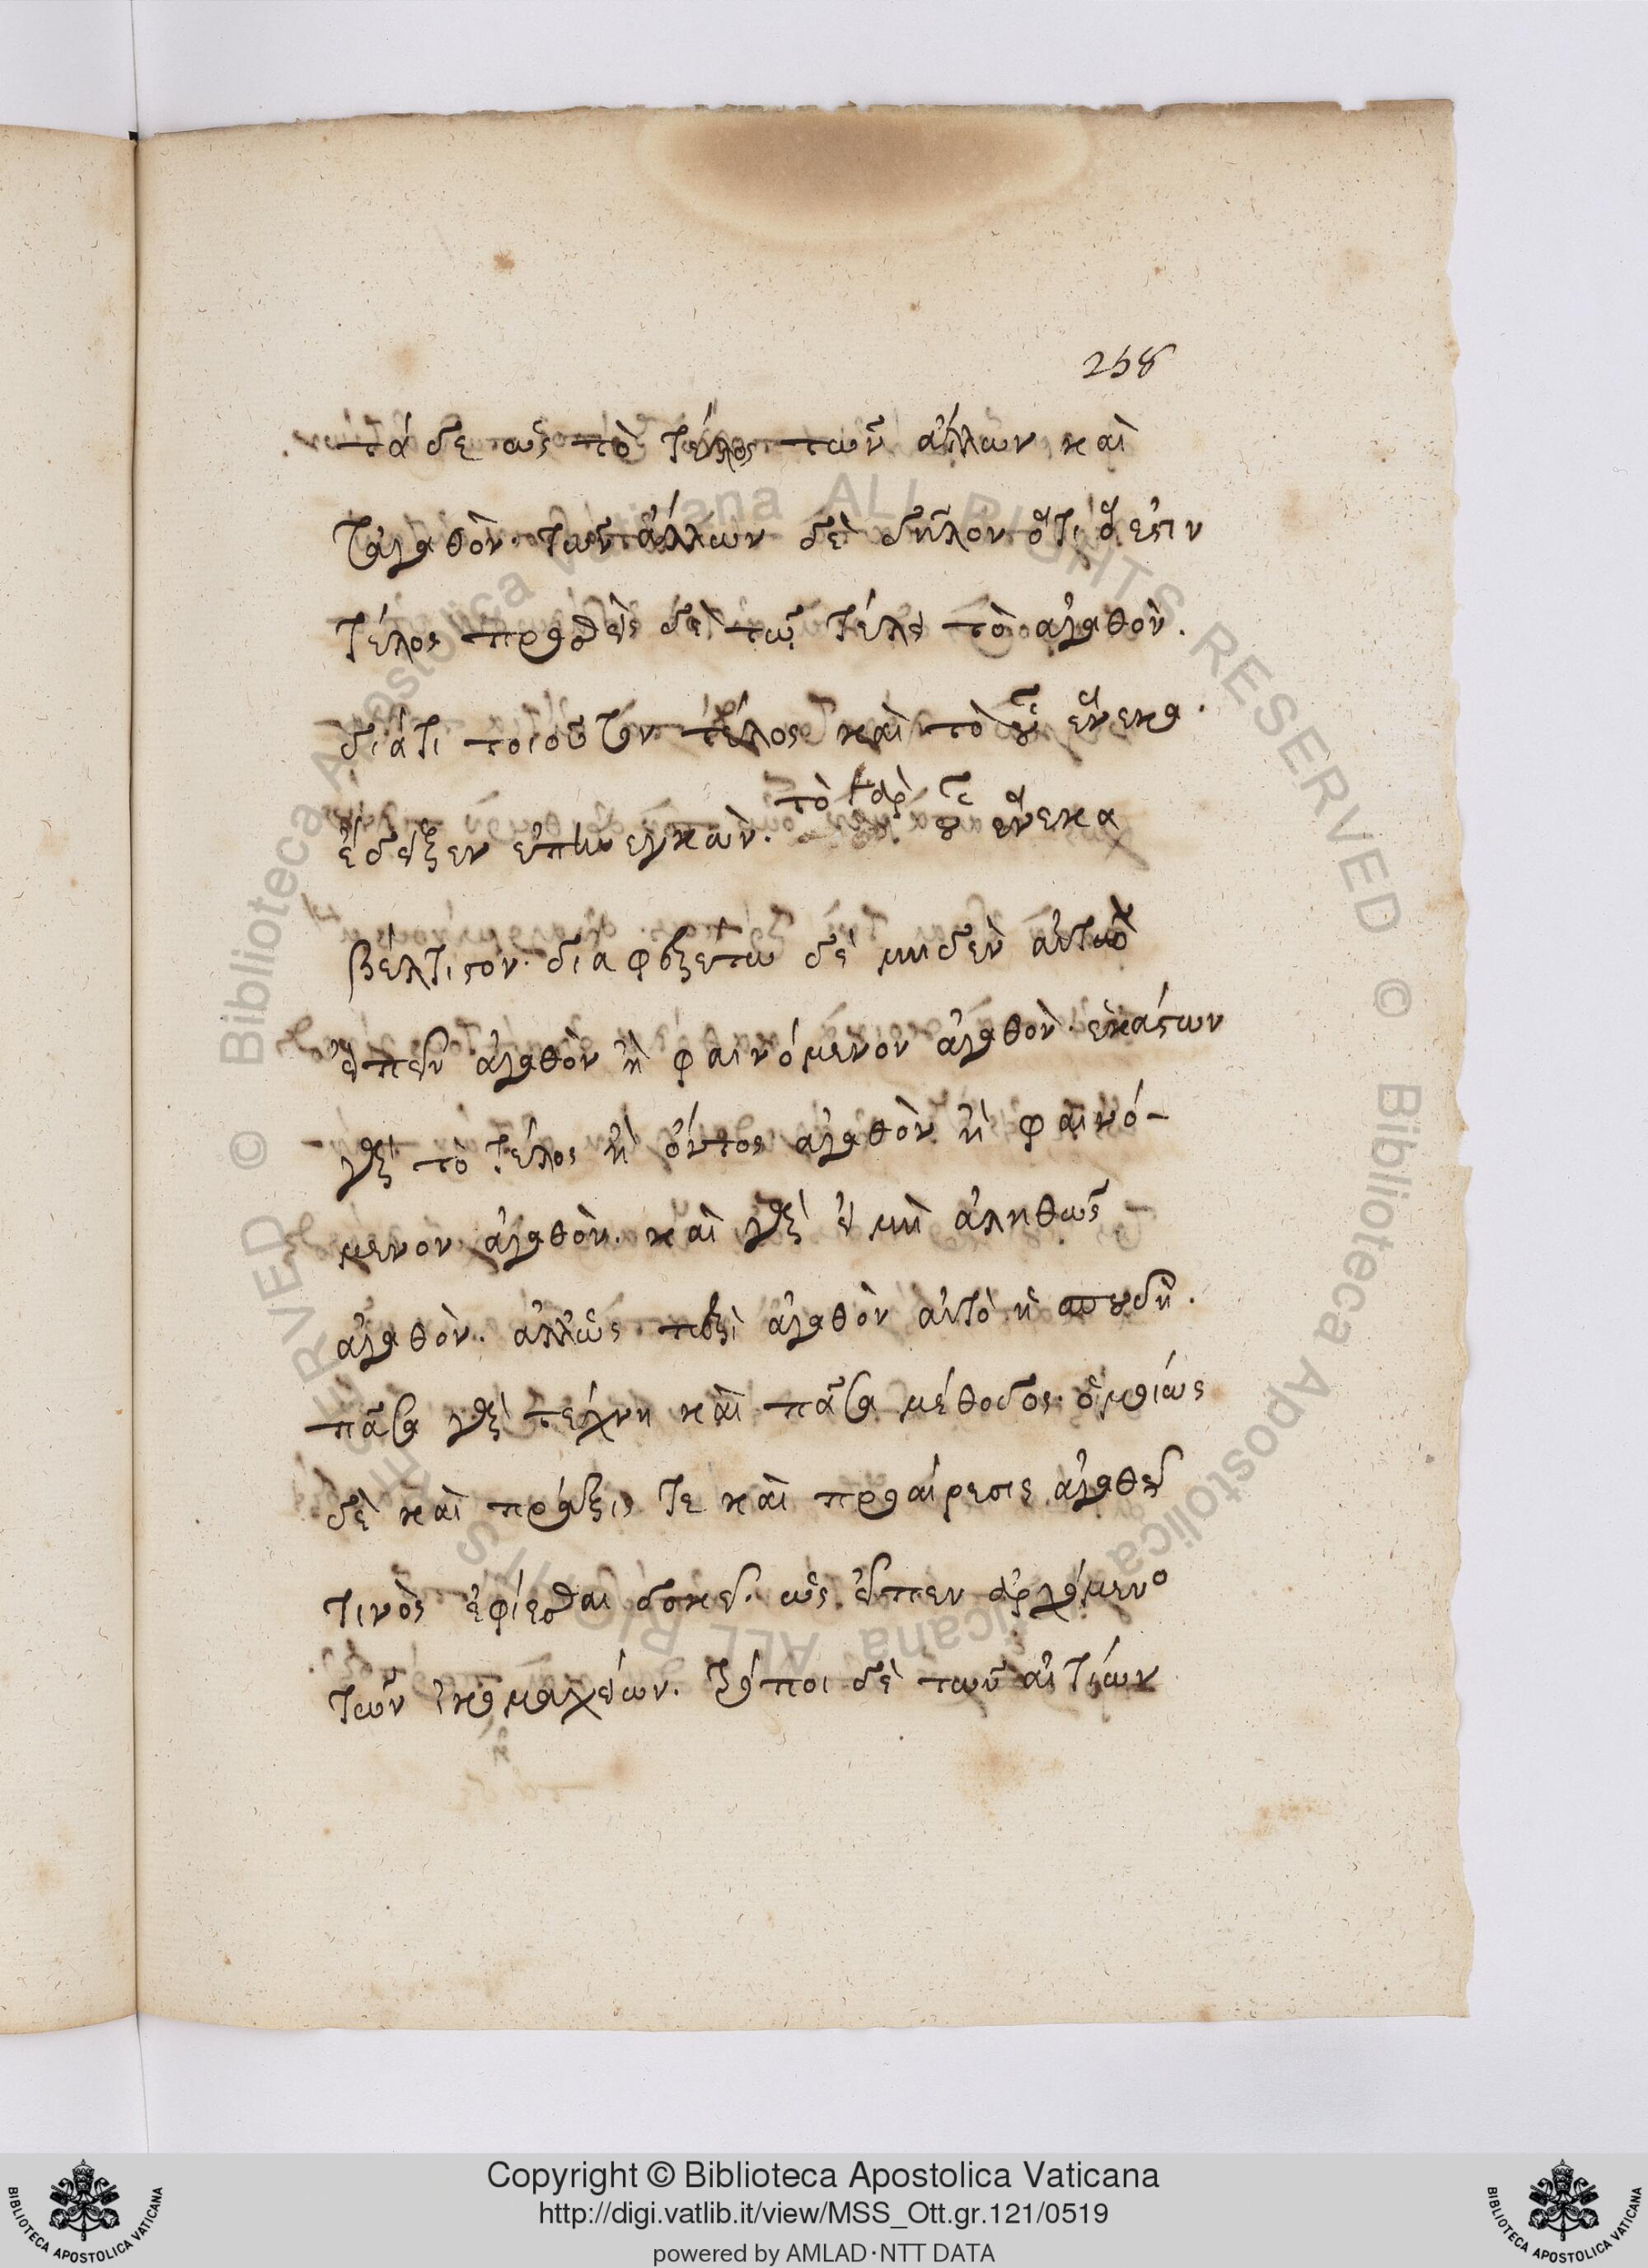 258
τά δε ὡς τὸ τέλος τῶν ἄλλων καὶ
τἀγαθὸν. τῶν ἄλλων δὲ δῆλον ὅτι ὧ ἐστιν
τέλος προσθεὶς δὲ τῷ τέλει τὸ ἀγαθὸν.
διάτι τοιοῦτον τέλος καὶ τὸ οὗ ἕνεκα.
ἔδειξεν ἐπενεγκὼν. τὸ γὰρ οὗ ἕνεκα
βέλτιστον. διαφερέτω δὲ μηδὲν αὐτὸ
εἰπεῖν ἀγαθὸν ἢ φαινόμενον ἀγαθὸν. ἑκάστων
γὰρ τὸ τέλος ἢ ὄντος ἀγαθὸν ἢ φαινό-
μενον ἀγαθὸν. καὶ γὰρ εἰ μὴ ἀληθῶς
ἀγαθὸν. ἀλλ' ὡς περὶ ἀγαθὸν αὐτὸ ἡ σπουδὴ.
πᾶσα γὰρ τέχνη καὶ πᾶσα μέθοδος. ὁμοίως
δὲ καὶ πράξις τε καὶ προαίρεσις ἀγαθοῦ
τινὸς ἐφίεσθαι δοκεῖ. ὡς εἶπεν ἀρχόμενο
τῶν νικομαχείων. τρόποι δὲ τῶν αἰτιῶν
Copyright © Biblioteca Apostolica Vaticana
http://digi.vatlib.it/view/MSS_Ott.gr.121/0519
powered by AMLAD·NTT DATA
BIBLIOTECA APOSTOLICA VATICANA
BIBLIOTECA APOSTOLICA VATICANA
© Biblioteca Apostolica Vaticana ALL RIGHTS RESERVED
© Biblioteca Apostolica Vaticana ALL RIGHTS RESERVED